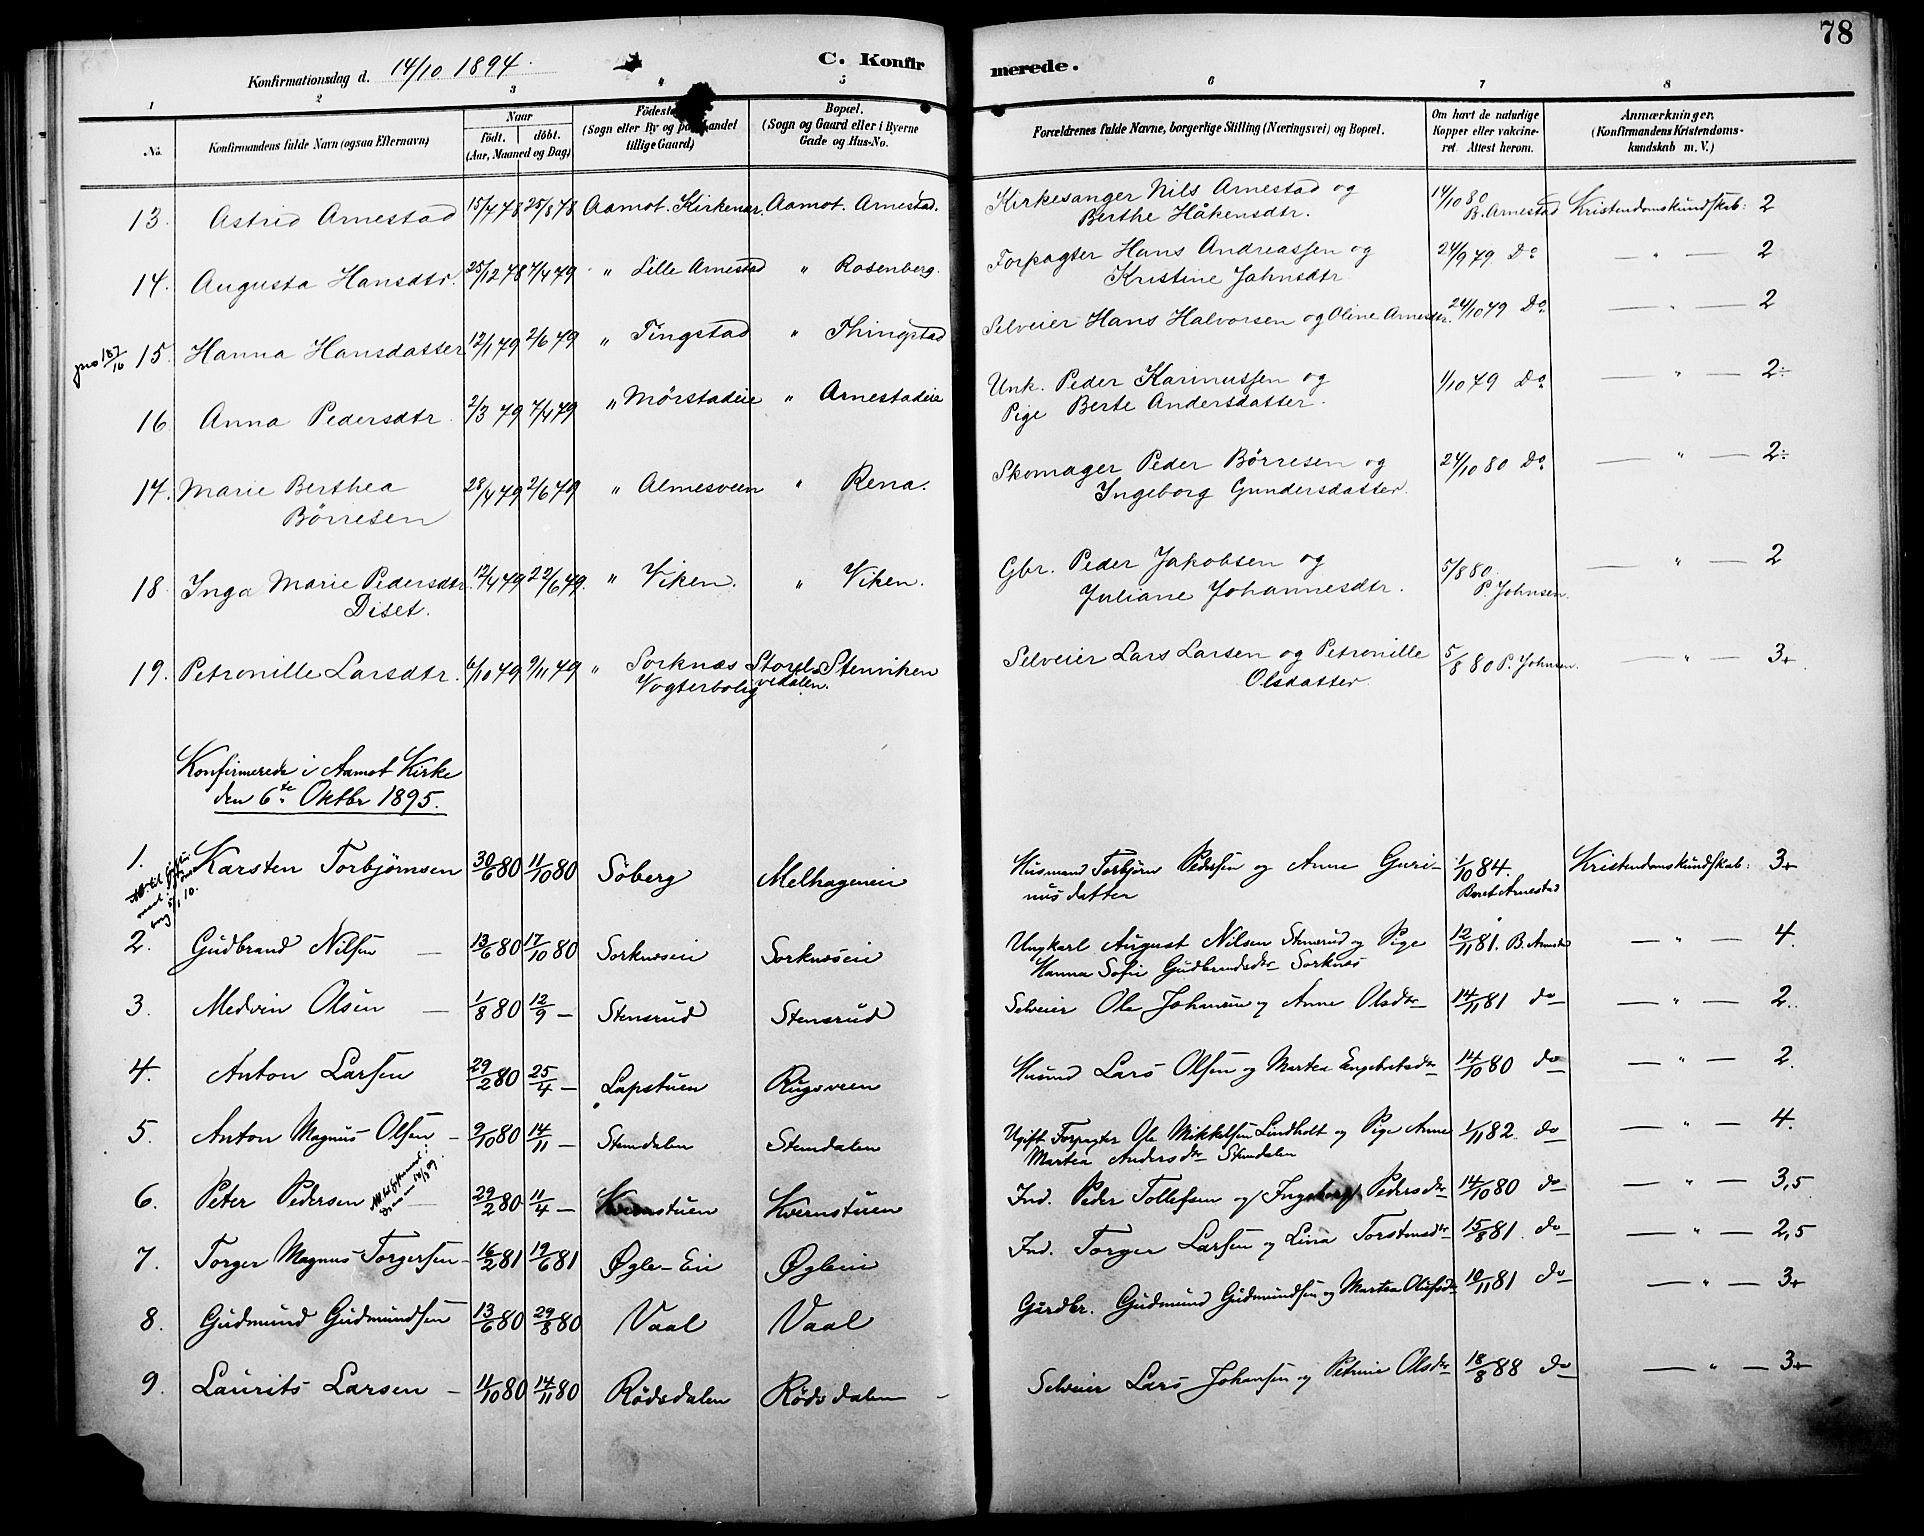 78
Konfirmationsdag d. 14/10 1894.
C. Konfirmerede.
1 2 3 4 5 6 7 8
No.
Konfirmandens fulde Navn (ogsaa Efternavn)
Naar
født. døbt.
(Aar, Maaned og Dag)
Fødeste
(Sogn eller By og paa Landet
tillige Gaard)
Bopæl.
(Sogn og Gaard eller i Byerne
Gade og Hus-No.
Forældrenes fulde Navne, borgerlige Stilling (Næringsvei) og Bopæl.
Om havt de naturlige
Kopper eller vakcine-
ret. Attest herom.
Anmærkninger.
(Konfirmandens Kristendoms-
kundskab m. V.)
13. Astrid Arnestad 15/4 78 25/8 78 Aamot. Kirkenær. Aamot. Arnestad. Kirkesanger Nils Arnestad og 14/10 80 Kristendomskundskab: 2
Berthe Håkensdtr. B. Arnestad
14. Augusta Hansdtr. 25/12 78 7/4 79 " Lille Arnestad " Rosenberg. Forpagter Hans Andreassen og 24/9 79 Do — " — 2
Kristine Jahnsdtr
15. Hanna Hansdatter 12/1 79 2/6 79 " Tingstad " Thingstad Selveier Hans Halvorsen og Oline Arnesdtr. 24/10 79 Do — " — 2
16. Anna Pedersdtr 2/3 79 7/4 79 " Mörstadeie " Arnestadeie Unk. Peder Karinussen og 1/10 79 Do — " — 2÷
Pige Berte Andersdatter.
17. Marie Berthea 28/4 79 2/6 79 " Almesveen " Rena. Skomager Peder Börresen og 24/10 80 Do — " — 2÷
Börresen Ingeborg Gundersdatter.
18 Inga Marie Pedersdtr 12/4 79 22/6 79. " Viken. " Viken. Gbr. Peder Jakobsen og 5/8 80. — " — 2
Diset. Juliane Johannesdtr. P. Johnsen.
19. Petronille Larsdtr. 6/10 79 9/11 79 " Sorknæs Storel- Stenviken Selveier Lars Larsen og Petronille 5/8 80 P. Johnsen. — " — 3+
Vogterbolig vedalen. Olsdatter.
Konfirmerede i Aamot Kirke
den 6te Oktbr 1895.
1. Karsten Torbjørnsen 30/6 80 11/10 80 Söberg Melhageneie Husmand Torbjørn Pedersen og Anne Guri- 1/10 84. Kristendomskundskab: 3+
nusdatter Beret Arnestad
2. Gudbrand Nilsen — 13/6 80 17/10 80 Sorknæseie Sorknæseie Ungkarl August Nilsen Stensrud og Pige 12/11 81. B. Arnestad — " — 4.
Hanna Sofie Gudbrandsdtr Sorknæs
3. Medvin Olsen — 1/8 80 12/9 — Stensrud Stensrud Selveier Ole Johansen og Anne Olsdtr 14/11 81 do — " — 2.
4. Anton Larsen 29/2 80 25/4 — Lapstuen Rugsveen Husmd Lars Olsen og Martea Engebretsdtr 14/10 80 do — " — 2.
5. Anton Magnus Olsen — 9/10 80 14/11 — Stendalen Stendalen Ugift Forpagter Ole Mikkelsen Lindholt og Pige Anne 1/11 82. do — " — 4.
Martea Andersdtr Stendalen
6. Peter Pedersen 29/2 80 11/4 — Kvernstuen Kvernstuen Ind. Peder Tollefsen og Ingeborg Pedersdtr 14/10 80 do — " — 3,5
7. Torger Magnus Torgersen — 16/2 81 19/6 81 Øgle-Eie Øgleeie Ind. Torger Larsen og Lina Torstensdtr 15/8 81. do — " — 2,5
8. Gudmund Gudmundsen 13/6 80 29/8 80 Vaal Vaal Gårdbr. Gudmund Gudmundsen og Martea Olufsdtr 10/11 81 do — " — 3+
9. Laurits Larsen — 11/10 80 14/11 80 Rödsdalen Rödsdalen Selveier Lars Johansen og Petrine Olsdtr 18/8 88 do — " — 3+